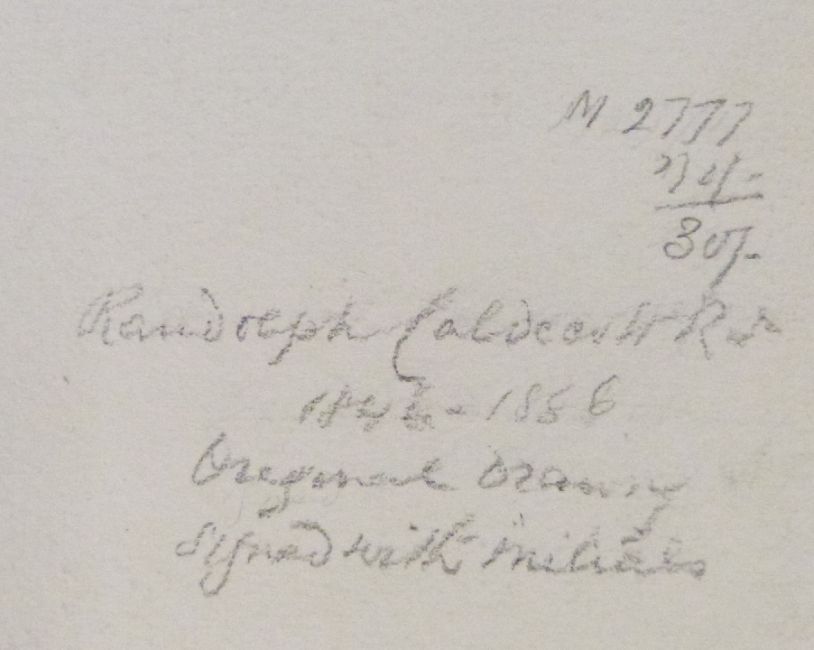 M 2777
30/-
Randolph Caldecott R
184 - 1856
Original Drawing
signed with initials